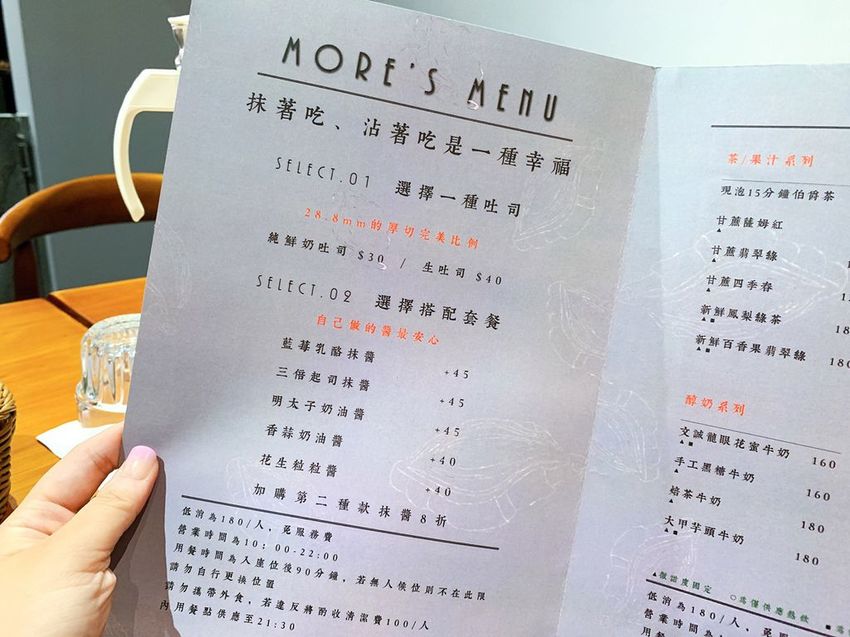 MORE'S MENU
抹著吃、沾著吃是一種幸福
SELECT.01 選擇一種吐司
28.8mm的厚切完美比例
純鮮奶吐司 $30 / 生吐司 $40
SELECT.02 選擇搭配套餐
自己做的醬最安心
藍莓乳酪抹醬 +45
三倍起司抹醬 +45
明太子奶油醬 +45
香蒜奶油醬 +40
花生粒粒醬 +40
加購第二種款抹醬8折
低消為180/人，免服務費
營業時間為10：00-22:00
用餐時間為入座位後90分鐘，若無人候位則不在此限
請勿自行更換位置
請勿攜帶外食，若違反將酌收清潔費100/人
內用餐點供應至21:30
茶/果汁系列
現泡15分鐘伯爵茶
甘蔗薩姆紅
▲
甘蔗翡翠綠
▲
甘蔗四季春
▲
新鮮鳳梨綠茶
▲■
新鮮百香果翡翠綠 180
▲■
醇奶系列
文誠龍眼花蜜牛奶 160
▲■
手工黑糖牛奶 160
▲
焙茶牛奶 180
▲■
大甲芋頭牛奶 180
▲■
▲微甜度固定 ○為僅供應熱飲 ■
低消為180/人，免服
營業時間為10：